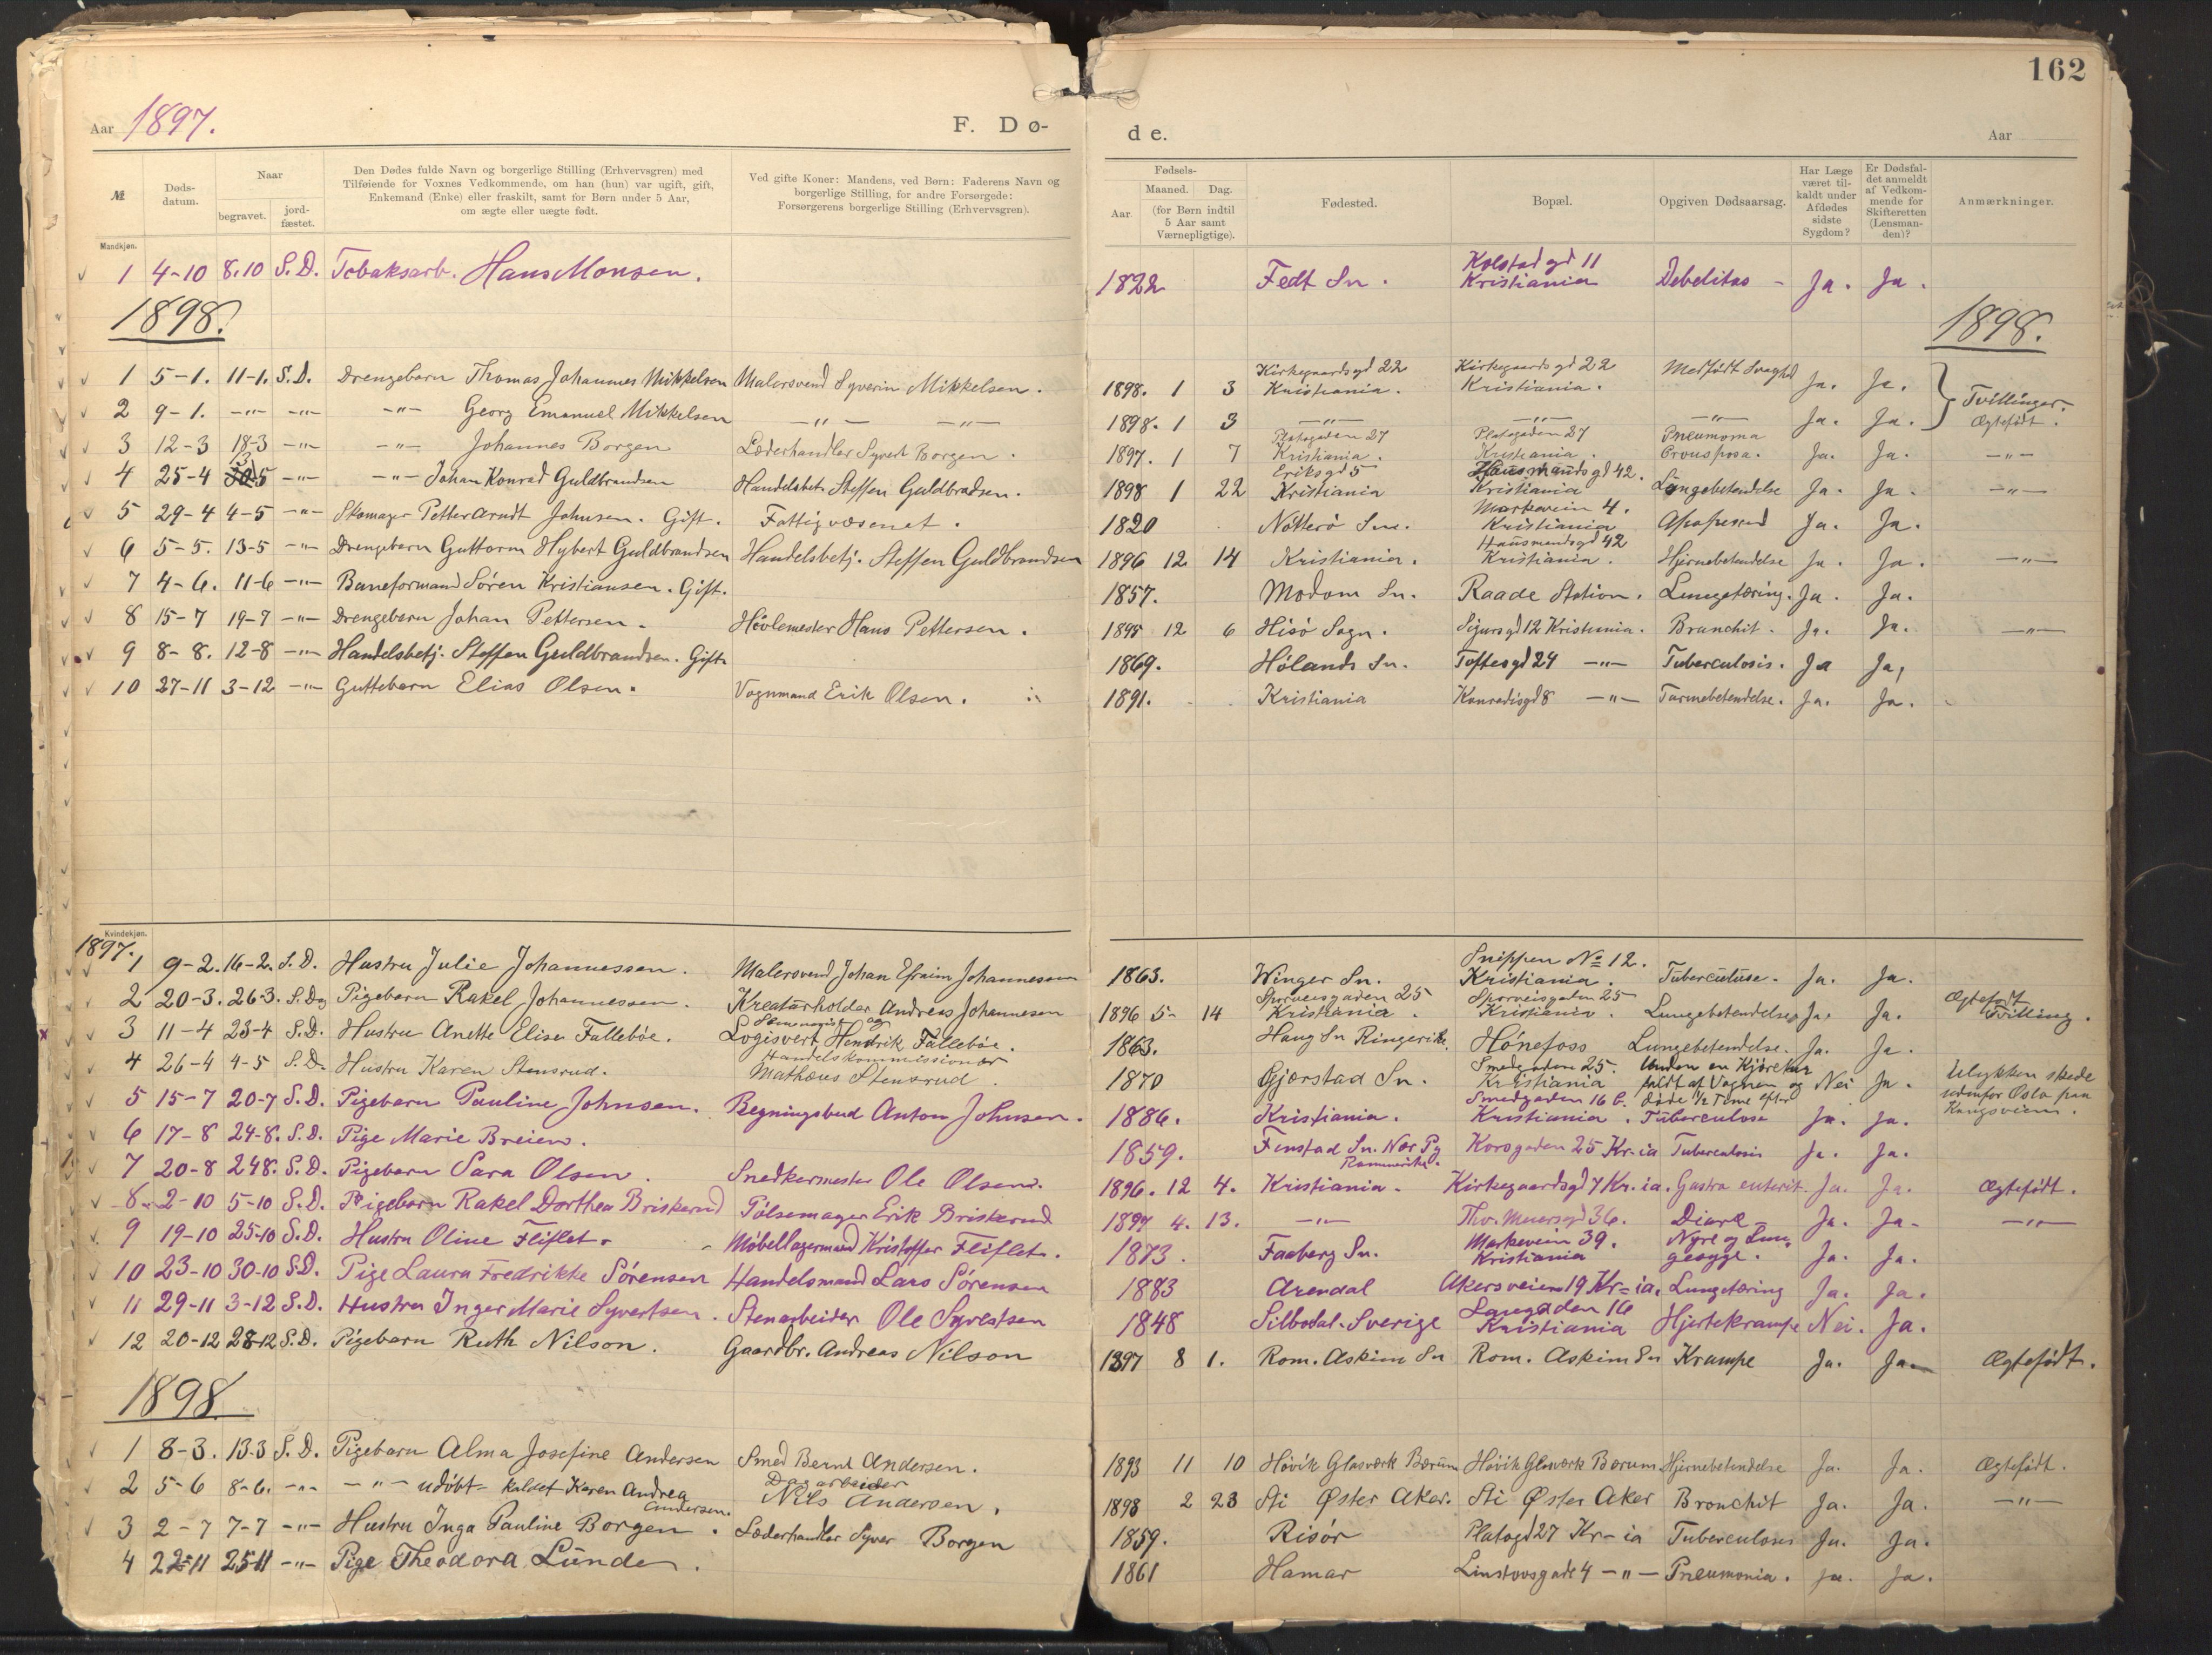 162
Aar 1897. F. Dø- de. Aar
№ Døds-datum. Naar begravet. jord-fæstet. Den Dødes fulde Navn og borgerlige Stilling (Erhvervsgren) med Tilføiende for Voxnes Vedkommende, om han (hun) var ugift, gift, Enkemand (Enke) eller fraskilt, samt for Børn under 5 Aar, om ægte eller uægte født. Ved gifte Koner: Mandens, ved Børn: Faderens Navn og borgerlige Stilling, for andre Forsørgede: Forsørgerens borgerlige Stilling (Erhvervsgren). Fødsels- Aar. Maaned. Dag. (for Børn indtil 5 Aar samt Værnepligtige). Fødested. Bopæl. Opgiven Dødsaarsag. Har Læge været til-kaldt under Afdødes sidste Sygdom? Er Dødsfal-det anmeldt af Vedkom-mende for Skifteretten (Lensman-den)? Anmærkninger.
Mandkjøn.
1 4-10 8.10 S.D. Tobaksarb. Hans Monsen. 1822 Fedt Sn. Kolstadgd 11 Kristiania Debelitas - Ja. Ja.
1898. 1898.
1 5-1. 11-1. S.D. Drengebarn Thomas Johannes Mikkelsen Malersvend Syverin Mikkelsen. 1898. 1 3 Kirkegaardsgd 22 Kristiania. Kirkegaardsgd 22 Kristiania. Medfødt Svaghd Ja. Ja. Tvillinger.
2 9-1. -"- -"- -"- Georg Emanuel Mikkelsen -"- -"- 1898. 1 3 -"- -"- -"- Ja. Ja. Ægtefødt.
3 12-3 18-3 -"- -"- Johannes Borgen Læderhandler Syvert Borgen. 1897. 1 7 Platogaden 27 Kristiania. Platogaden 27 Kristiania. Pneumoma Crousposa. Ja. Ja. -"-
4 25-4 3/5 -"- -"- Johan Konrad Guldbrandsen Handelsbet. Steffen Guldbradsen. 1898 1 22 Eriksgd 5 Kristiania Hausmandsgd 42. Kristiania Lungebetendelse Ja. Ja. -"-
5 29-4 4-5 -"- Skomager Petter Arndt Johnsen. Gift. Fattigvæsenet. 1820 Nøtterø Sn. Markvein 4. Kristiania Ja. Ja.
6 5-5. 13-5 -"- Drengebarn Guttorm Hybert Guldbrandsen Handelsbetj. Steffen Guldbrandsen 1896 12 14 Kristiania. Hausmandsgd 42 Kristiania. Hjernebetendelse Ja. Ja. -"-
7 4-6. 11-6 -"- Baneformand Søren Kristiansen. Gift. 1857. Modom Sn. Raade Station. Lungetæring. Ja. Ja.
8 15-7 19-7 -"- Drengebarn Johan Pettersen. Høvlemester Hans Pettersen. 1895 12 6 Hisø Sogn. Sigursgd 12 Kristiania. Branchit. Ja. Ja. -"-
9 8-8. 12-8 -"- Handelsbetj. Steffen Guldbrandsen. Gift. 1869. Hølands Sn. Toftesgd 24 -"- Tuberculosis. Ja Ja,
10 27-11 3-12 -"- Guttebarn Elias Olsen. Vognmand Erik Olsen. 1891. Kristiania Konradisgd 8 -"- Tarmebetendelse. Ja. Ja.
Kvindekjøn.
1897.
1 9-2. 16-2. S.D. Hustru Julie Johannessen. Malersvend Johan Efraim Johannessen 1863. Winger Sn. Snippen № 12. Kristiania. Tuberculuse. Ja. Ja.
2 20-3. 26-3. S.D. Pigebarn Rakel Johannessen. Kreaturholder Andreas Johannesen 1896 5- 14 Sporveisgaden 25 Kristiania. Sporveisgaden 25 Kristiania. Lungebetendelse Ja. Ja. Ægtefødt Tvilling.
3 11-4 23-4 S.D. Hustru Anette Elise Fallebøe. Logisvert Hendrik Fallebøe. 1863. Haug Sn Ringerike. Hønefoss Lungebetendelse. Ja. Ja.
4 26-4 4-5 S.D. Hustru Karen Stensrud. Handelskommissionær Mathæus Stensrud. 1870 Gjærstad Sn. Smedgaden 25. Kristiania Under en Kjøretur faldt af Vognen og døde 1/2 Time efter Nei Ja. Ulykken skede udenfor Oslo paa Kongsveien.
5 15-7 20-7 S.D. Pigebarn Pauline Johnsen. Regningsbud Anton Johnsen. 1886. Kristiania. Smedgaden 16 b. Kristiania. Tuberculose Ja. Ja.
6 17-8 24-8. S.D. Pige Marie Breien. 1859. Fenstad Sn. Nær Pg Rommerike. Korsgaden 25 Kr-ia Tuberculosis Ja. Ja.
7 20-8 248. S.D. Pigebarn Sara Olsen. Snedkermester Ole Olsen. 1896. 12 4. Kristiania. Kirkegaardsgd 7 Kr.ia. Gastro enterit. Ja. Ja. Ægtefødt.
8. 2-10 5-10 S.D. Pigebarn Rakel Dorthea Briskerud Pølsemager Erik Briskerud 1897 4. 13. -"- Thv. Meiersgd 36. Diare Ja. Ja. -"-
9 19-10 25-10 S.D. Hustru Oline Fliflet. Møbellagermand Kristoffer Fliflet. 1873. Faaberg Sn. Markvein 39. Kristiania Nyre og Lun-gesyge. Ja. Ja.
10 23-10 30-10 S.D. Pige Laura Fredrikke Sørensen Handelsmand Lars Sørensen 1883 Arendal Akersveien 19 Kr-ia. Lungetæring Ja. Ja.
11 29-11 3-12 S.D. Hustru Inger Marie Syvertsen. Stenarbeider Ole Syvestsen 1848 Silbodal. Sverige Langgaden 16 Kristiania Hjertekrampe Nei. Ja.
12 20-12 28-12 S.D. Pigebarn Ruth Nilson. Gaardbr. Andreas Nilson 1897 8 1. Rom. Askim Sn Rom. Askim Sn Krampe Ja. Ja. Ægtefødt.
1898
1 8-3. 13-3 S.D. Pigebarn Alma Josefine Andersen Smed Bernt Andersen. 1893 11 10 Høvik Glasværk Bærum Høvik Glasværk Bærum. Hjernebetendelse Ja. Ja. Ægtefødt.
2 5-6 8-6. -"- -"- udøbt- kaldet Karen Andrea Andersen. Dagarbeider Nils Andersen. 1898 2 23 Sti Øster Aker. Sti Øster Aker Bronchit Ja. Ja. -"-
3 2-7 7-7 -"- Hustru Inga Pauline Borgen. Læderhandler Syver Borgen 1859. Risør Platogd 27 Kr-ia Tuberculoses Ja. Ja.
4 22-11 25-11 -"- Pige Theodora Lunde. 1861 Hamar Linstovsgade 4 -"- Pneumonia. Ja. Ja.